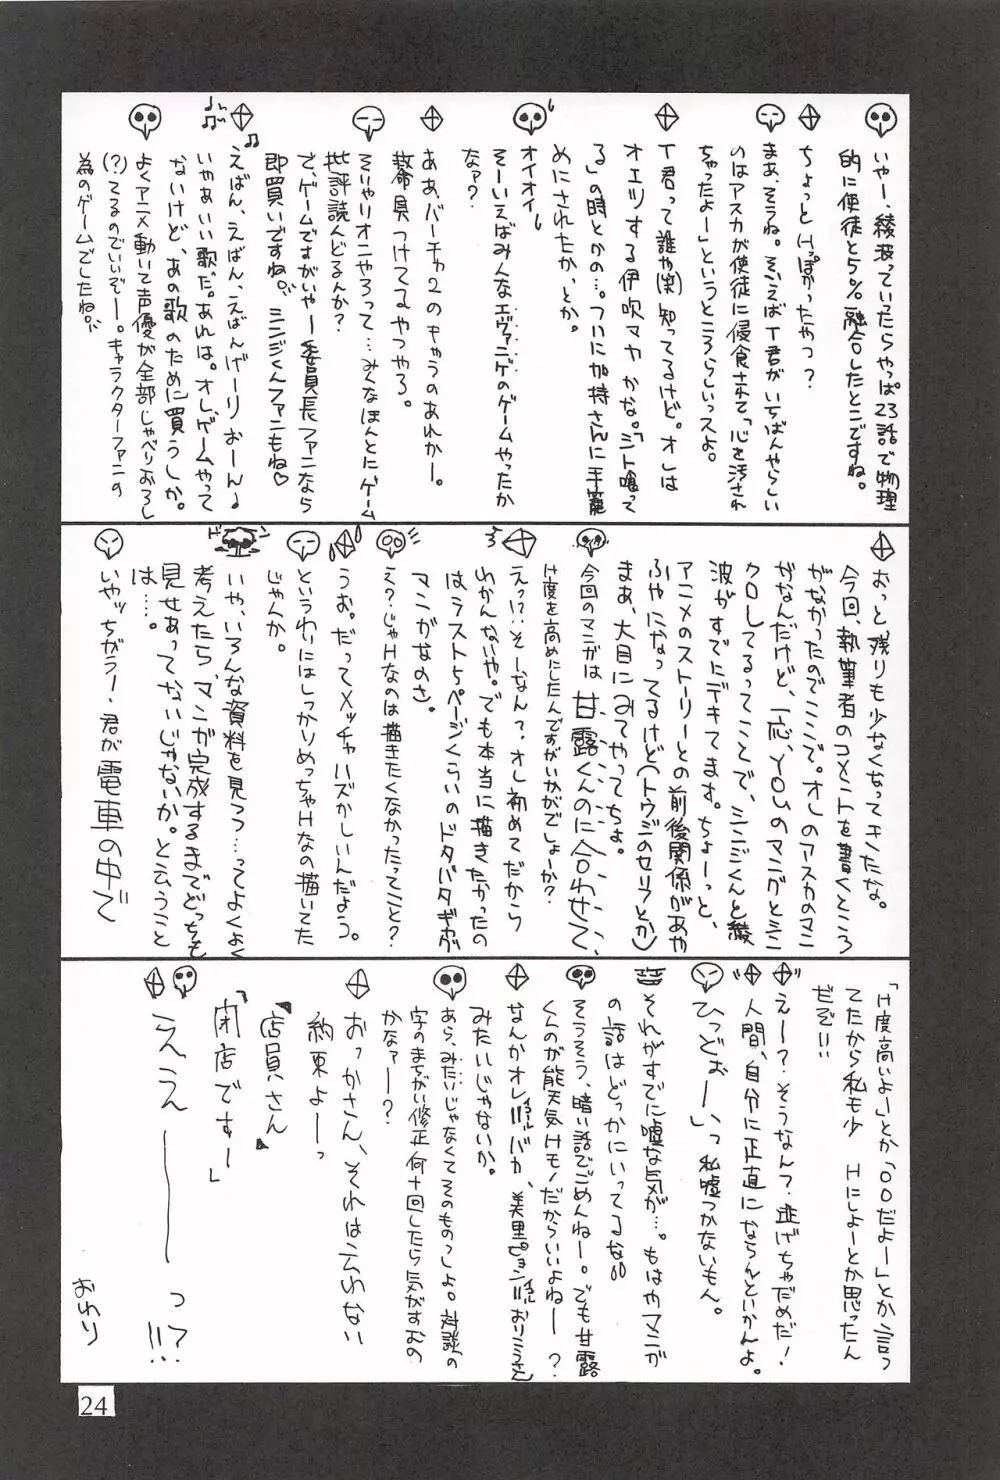 いやー、綾波っていったらやっぱ23話で物理
的に使徒と5%融合したとこですね。
ちょっとHっぽかったやつ?
まあ、そうね。そいえばT君がいちばんやらしい
のはアスカが使徒に侵食されて「心を汚され
ちゃったよー」というところらしいっスよ。
T君って誰や(笑)知ってるけど。オレは
オエツする伊吹マヤかな。「シト喰って
る」の時とかの…。ついに加持さんに手籠
めにされたか、とか。
オイオイ
そーいえばみんなエヴァンゲのゲームやったか
なァ?
ああ、バーチャ2のキャラのあれかー。
拘束具つけてるやつやろ。
そりゃリオニやろって…みんなほんとにゲーム
批評読んどるんか?
で、ゲームですがいやー委員長ファンなら
即買いですね。シンジくんファンもね♡
えばん、えばん、えばんげーりおーん♪
いやぁいい歌だ。あれは。オレ、ゲームやって
ないけど、あの歌のために買うしか。
よくアニメ動いて声優が全部しゃべりおろし
(?)てるのでいいぞー。キャラクターファンの
為のゲームでしたね。
おっと残りも少なくなってきたな。
今回、執筆者のコメントを書くところ
がなかったのでここで。オレのアスカのマン
がなんだけど、一応、YOUのマンガとシン
クロしてるってことで、シンジくんと綾
波がすでにデキてます。ちょーっと、
アニメのストーリーとの前後関係があや
ふやになってるけど(トウジのセリフとか)
まあ、大目にみてやってちょ。
今回のマンガは甘露くんのに合わせて
H度を高めにしたんですがいかがでしょーか?
えっ!?そーなん?オレ初めてだから
わかんないや。でも本当に描きたかったの
はラスト5ページくらいのドタバタギャグ
マンガなのさ。
え?じゃHなのは描きたくなかったってこと?
うぉ。だってメッチャハズかしいんだよう。
というわりにはしっかりめっちゃHなの描いてた
じゃんか。
いや、いろんな資料を見つつ…ってよくよく
考えたら、マンガ完成するまでどっちも
見せあってないじゃないか。と云うこと
は…。
いやッちがうー、君が電車の中で
「H度高いよー」とか「○○だよー」とか言っ
てたから私も少 Hにしよーとか思ったん
だぞ!!
えー?そうなん?逃げちゃだめだ!
人間、自分に正直にならんといかんよ。
ひっどぉーいっ私嘘つかないもん。
それがすでに嘘な気が…。もはやマンガ
の話はどっかにいってるな
そうそう、暗い話でごめんねー。でも甘露
くんのが能天気Hモノだからいいよねー?
なんかオレ=バカ、美里ぴょん=おりこうさん
みたいじゃないか。
あら、みたいじゃなくてそのものっしょ。対談の
字のまちがい修正何十回したら気がすむの
かなァー?
おっかさん、それは云わない
約束よーっ
店員さん
「閉店ですー」
ええーーーっ!?
おわり
24